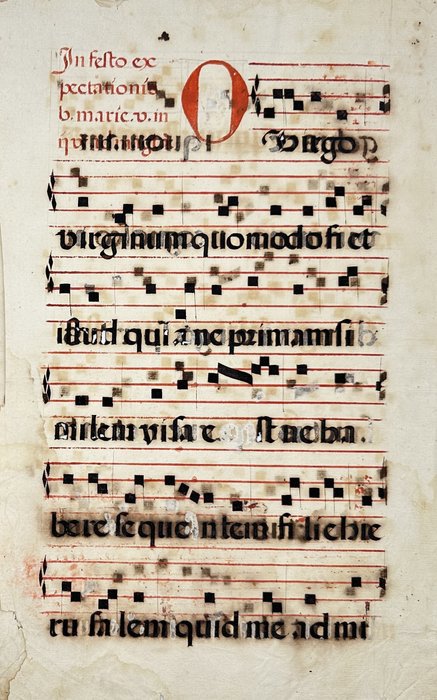 In festo ex
pectationis
b. marie. v. in
O Virgo
virginum quomodo fiet
istud quia nec primam si
milem visa e st nec ha.
bere sequentem filie hie
ru sa lem quid me admi